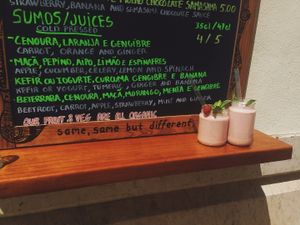 STRAWBERRY, BANANA AND SEMASIMA CHOCOLATE SAUCE
SUMOS/JUICES 35cl/47cl
COLD PRESSED 4 / 5
- CENOURA, LARANJA E GENGIBRE
CARROT, ORANGE AND GINGER
- MAÇÃ, PEPINO, AIPO, LIMÃO E ESPINAFRES
APPLE, CUCUMBER, CELERY, LEMON AND SPINACH
- KEFIR OU IOGURTE, CURCUMA GENGIBRE E BANANA
KEFIR OR YOGURT, TUMERIC, GINGER AND BANANA
- BETERRABA, CENOURA, MAÇÃ, MORANGO, MENTA E GENGIBRE
BEETROOT, CARROT, APPLE, STRAWBERRY, MINT AND GINGER
OUR FRUIT & VEG ARE ALL ORGANIC
same, same but different.